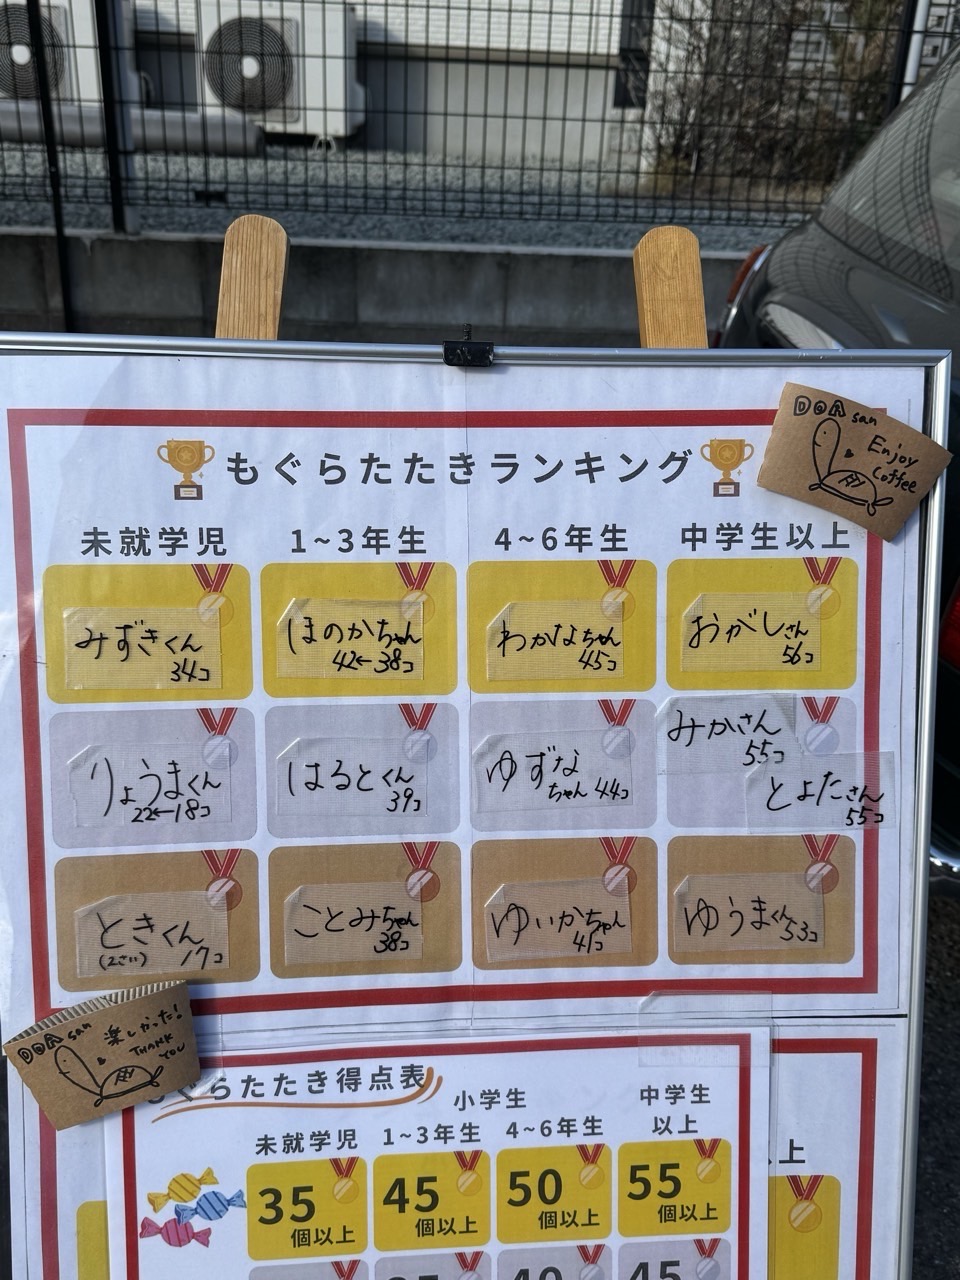 もぐらたたきランキング
DOA san
Enjoy
Coffee
未就学児
1~3年生
4~6年生
中学生以上
みずきくん
34コ
ほのかちゃん
42←38コ
わかなちゃん
45コ
おがしさん
56コ
りょうまくん
22←18コ
はるとくん
39コ
ゆずな
ちゃん 44コ
みかさん
55コ
とよたさん
55コ
ときくん
(2さい) 17コ
ことみちゃん
38コ
ゆいかちゃん
41コ
ゆうまくん
53コ
DOA san
楽しかった!
THANK
YOU
ぐらたたき得点表
小学生
未就学児
1~3年生
4~6年生
中学生
以上
35
個以上
45
個以上
50
個以上
55
個以上
上
40
45